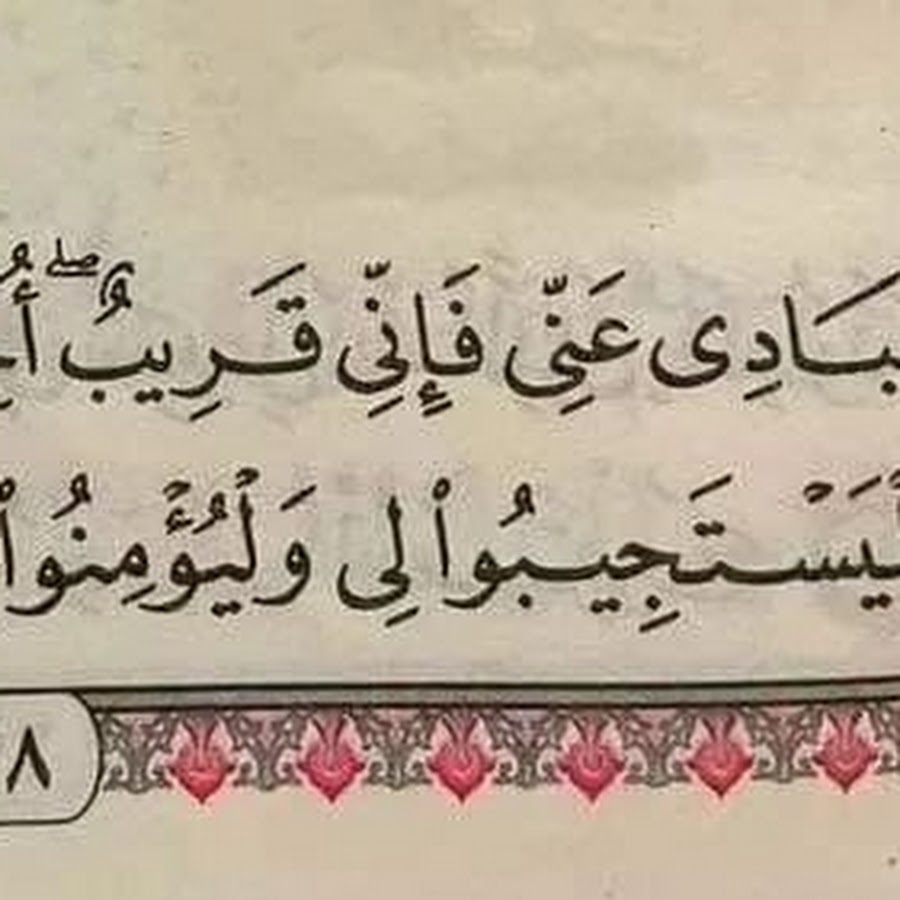 بَادِى عَنِّى فَإِنِّى قَرِيبٌ ۖ أُ
لْيَسْتَجِيبُوا۟ لِى وَلْيُؤْمِنُوا۟
٨